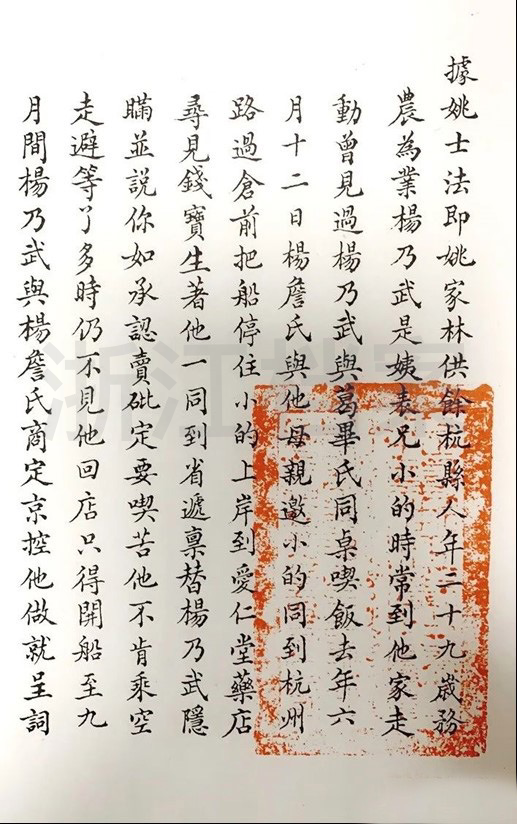 據姚士法即姚家林供餘杭縣人年二十九歲務
農為業楊乃武是姨表兄小的時常到他家走
動曾見過楊乃武與葛畢氏同桌喫飯去年六
月十二日楊詹氏與他母親邀小的同到杭州
路過倉前把船停住小的上岸到愛仁堂藥店
尋見錢寶生著他一同到省遞稟替楊乃武隱
瞞並說你如承認賣砒定要喫苦他不肯乘空
走避等了多時仍不見他回店只得開船至九
月間楊乃武與楊詹氏商定京控他做就呈詞
浙江档案